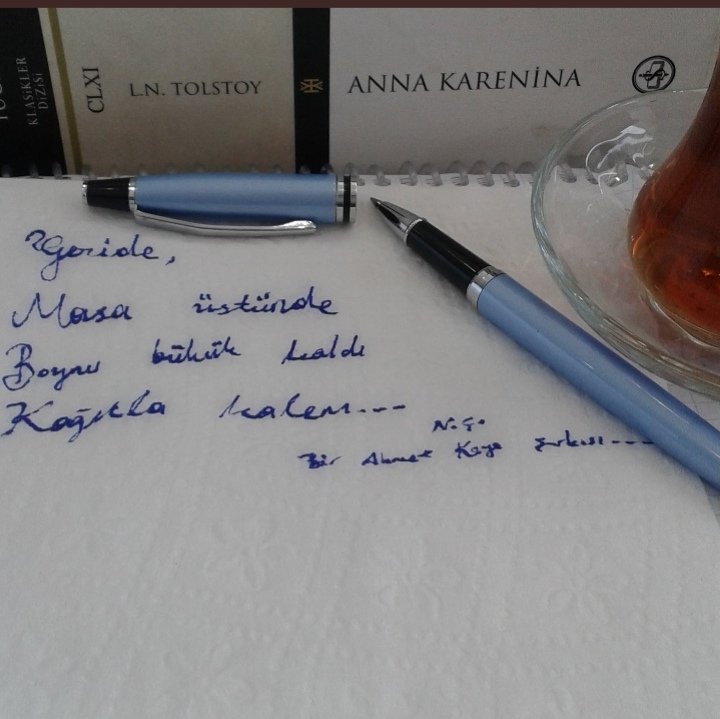 KLASİKLER
DİZİSİ
CLXI
L.N. TOLSTOY
ANNA KARENİNA
Geride,
Masa üstünde
Boynu bükük kaldı
Kağıtla kalem...
N.Ç.
Bir Ahmet Kaya şarkısı...